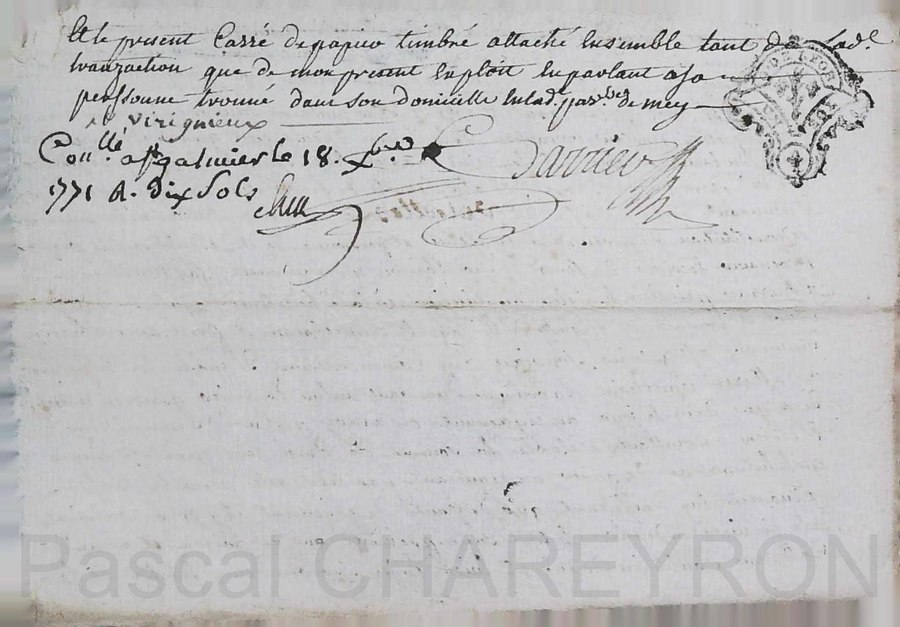 et le present Carré de papier timbré attaché Ensemble tant de lad.e
tranzaction que de mon present Exploit En parlant a sa
perssonne trouvé dans son domicelle En lad. par.sse de mey
virignieux
Con.llé a st galmier le 18. xbre
1771 R. dix sols
Pascal CHAREYRON